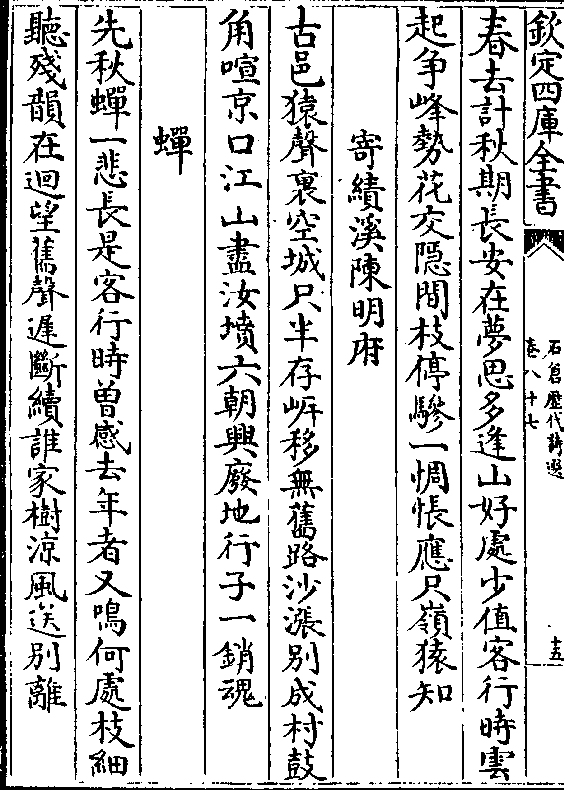 欽定四庫全書
石倉歷代詩選
卷八十七
十五
春去計秋期長安在夢思多逢山好處少值客行時雲
起爭峰勢花交隠間枝停驂一惆悵應只嶺猿知
寄績溪陳明府
古邑猿聲裏空城只半存岍移無舊路沙漲别成村鼓
角喧京口江山盡汝墳六朝興廢地行子一銷魂
蟬
先秋蟬一悲長是客行時曽感去年者又鳴何處枝細
聽殘韻在迴望舊聲遲斷續誰家樹涼風送别離